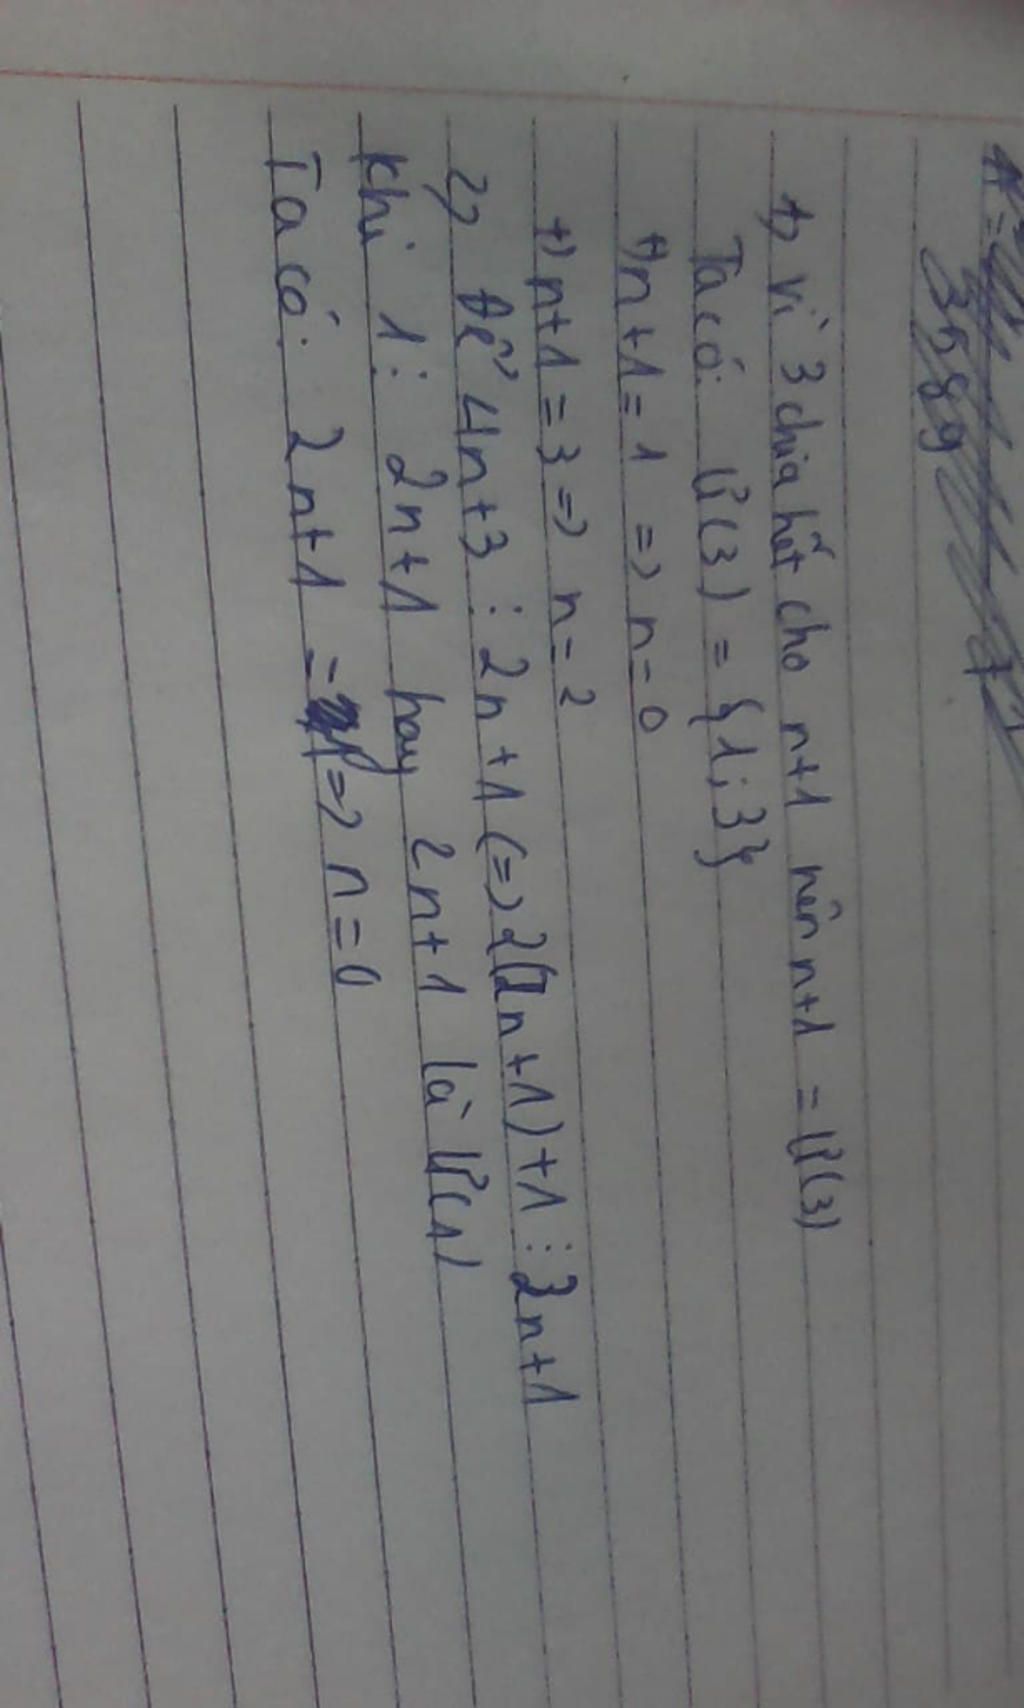 3589
1) Vì 3 chia hết cho n+1 nên n+1 = Ư(3)
Ta có: Ư(3) = {1; 3}
+) n+1 = 1 => n = 0
+) n+1 = 3 => n = 2
2) Để 4n+3 ⋮ 2n+1 (=> 2(2n+1)+1 ⋮ 2n+1
Khi 1 ⋮ 2n+1 hay 2n+1 là Ư(1)
Ta có: 2n+1 = 1 => n = 0